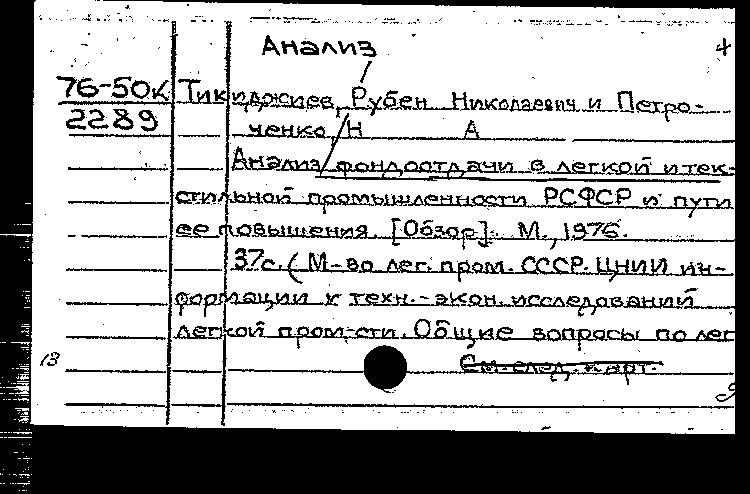 Анализ
4
76-50к Тикиджиев, Рубен Николаевич и Петро-
2289 ченко, Н А
Анализ фондоотдачи в легкой и тек-
стильной промышленности РСФСР и пути
ее повышения. [Обзор]. М., 1976.
37с. (М-во лег. пром. СССР. ЦНИИ ин-
формации и техн.-экон. исследований
легкой пром-сти. Общие вопросы по лег
См. след. карт.
13